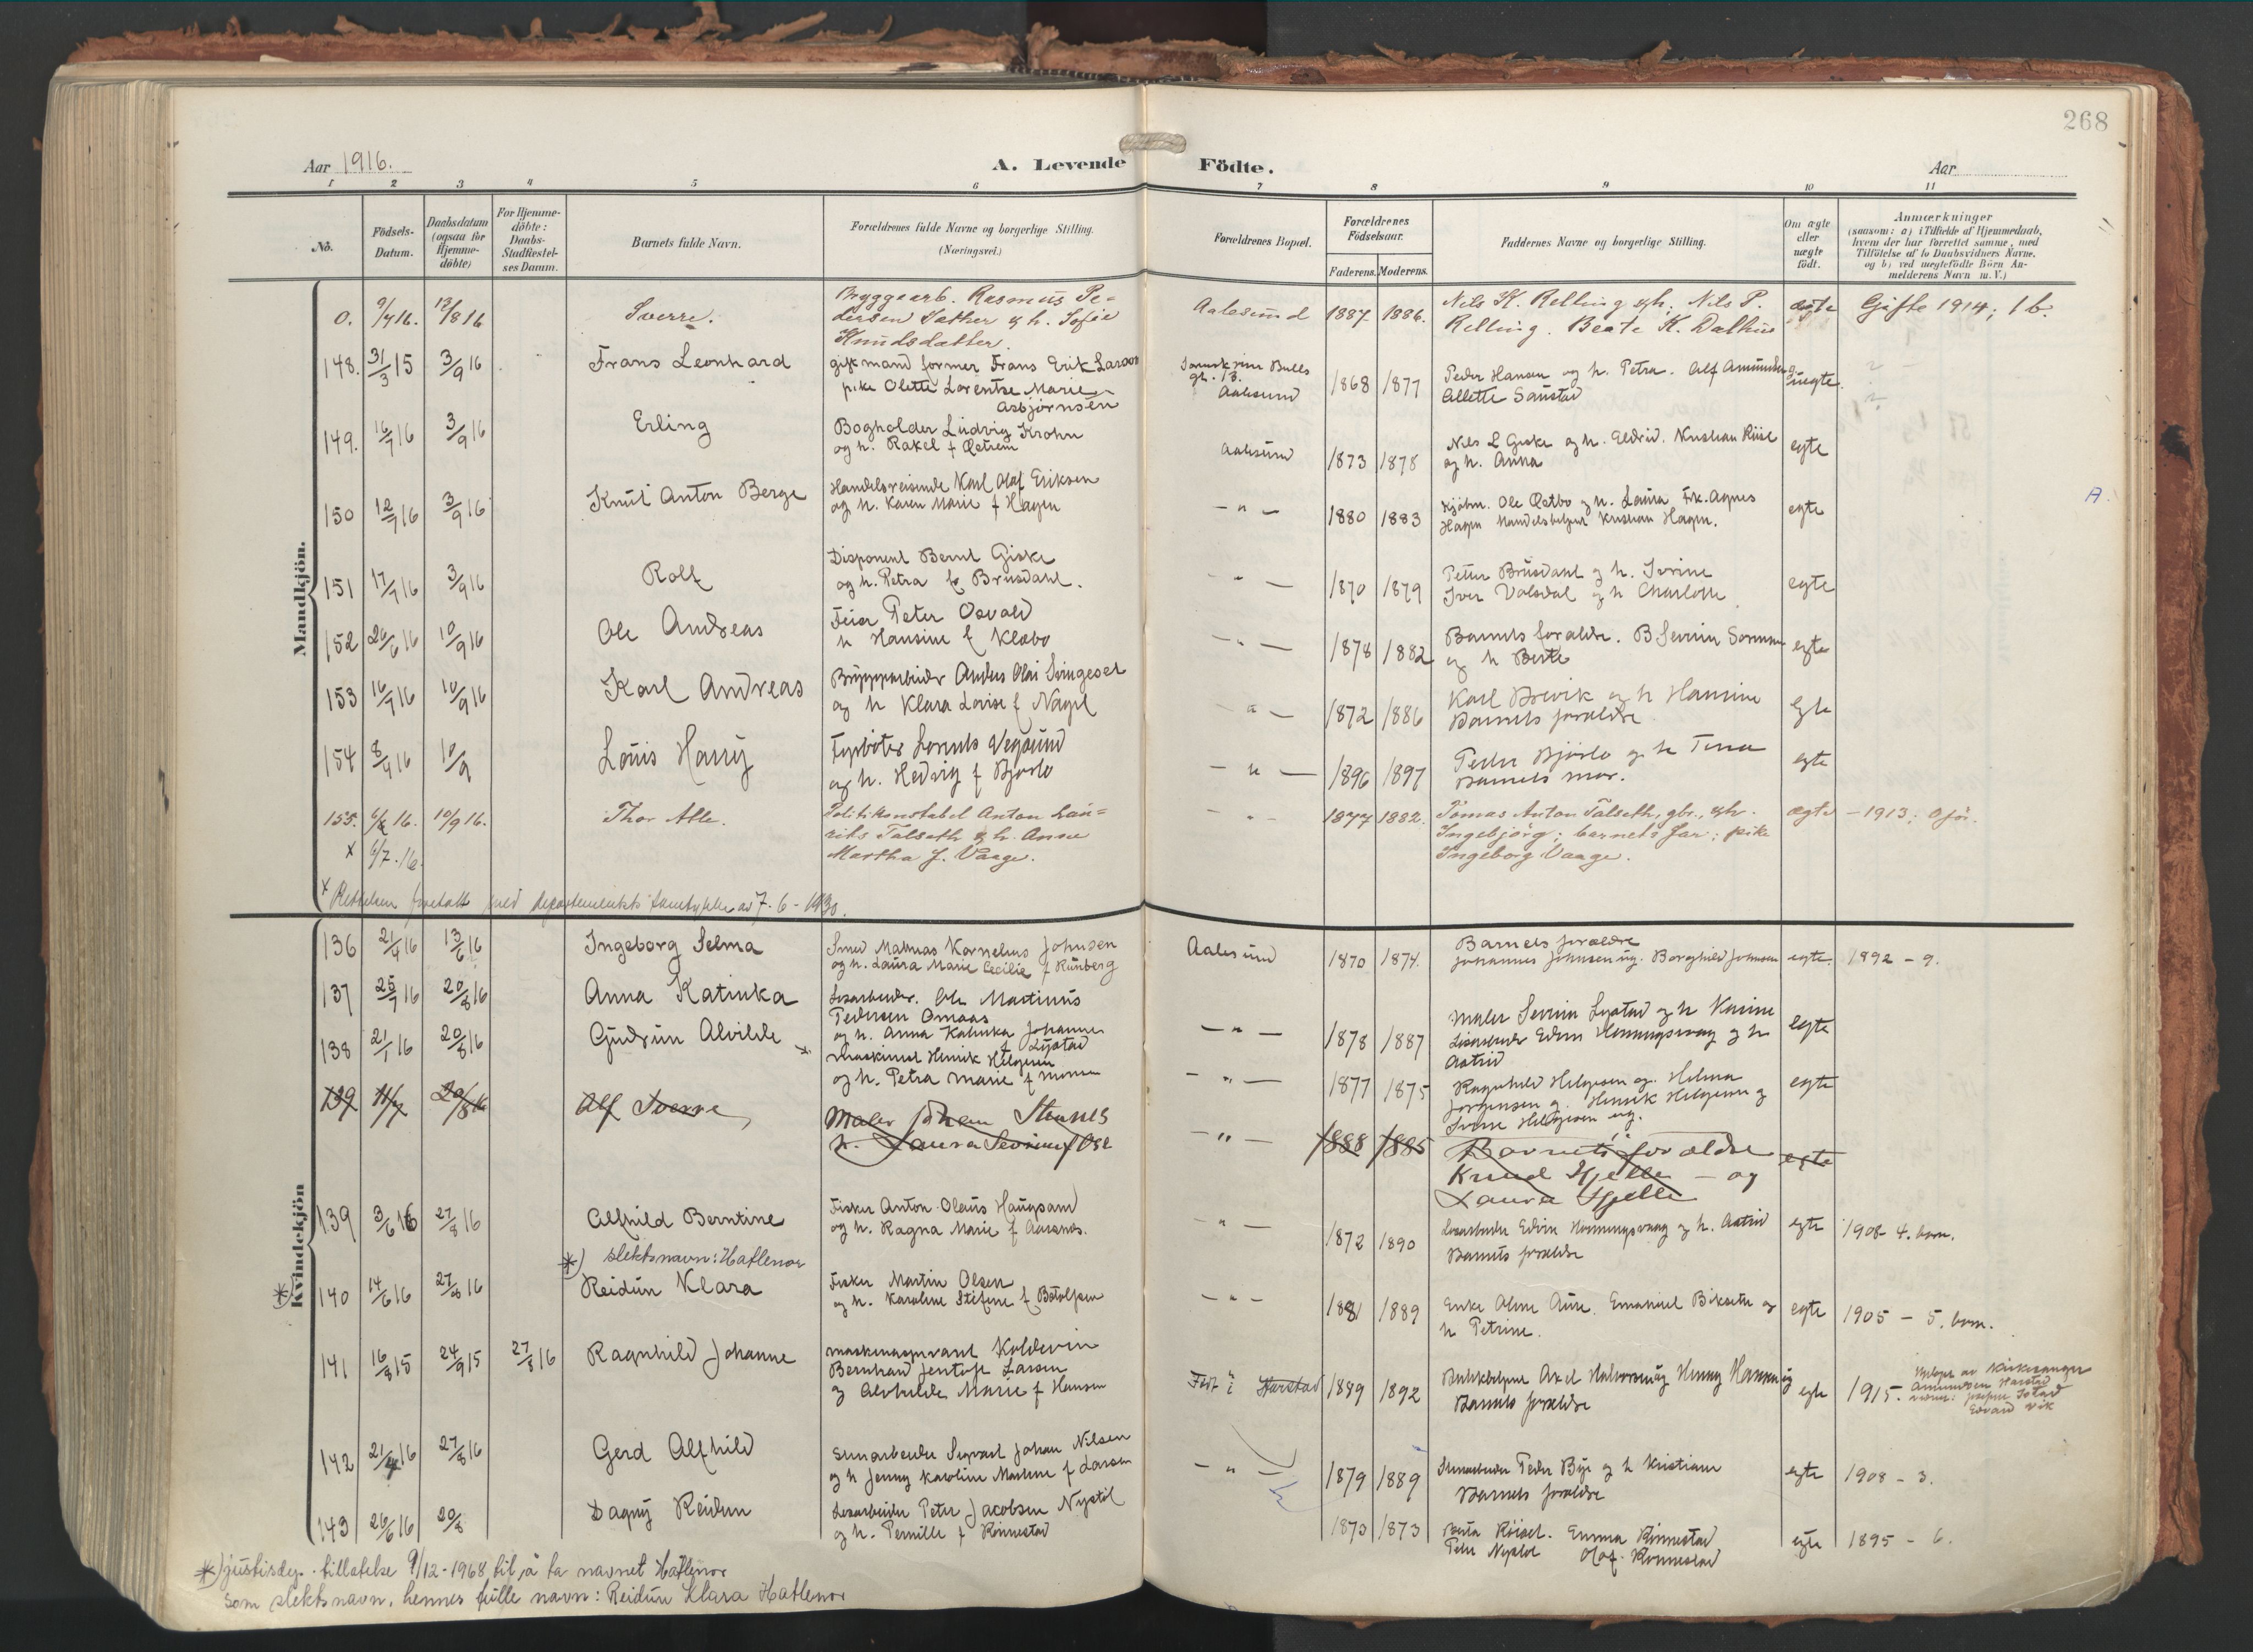 268
Aar 1916.
A. Levende Födte.
Aar
1 2 3 4 5 6 7 8 9 10 11
No.
Födsels-Datum.
Daabsdatum (ogsaa for Hjemme-döbte)
For Hjemme-döbte: Daabs-Stadfæstel-ses Datum.
Barnets fulde Navn.
Forældrenes fulde Navne og borgerlige Stilling. (Næringsvei.)
Forældrenes Bopæl.
Forældrenes Födselsaar.
Faderens. Moderens.
Faddernes Navne og borgerlige Stilling.
Om ægte eller uægte födt.
Anmærkninger
(saasom: a) i Tilfælde af Hjemmedaab, hvem der har forrettet samme, med Tilföielse af to Daabsvidners Navne. og b) ved uægtefödte Börn An-melderens Navn m. V.)
Mandkjön.
0. 9/7 16. 13/8 16 Sverre. Bryggearb. Rasmus Pe-
dersen Sæther & h. Sofie
Knudsdatter.
Aalesund 1887 1886. Nils K. Relling & h. Nils P.
Relling. Beate K. Dalhus
ægte Gifte 1914; 1 b.
148. 31/3 15 3/9 16 Frans Leonhard gift mand former Frans Erik Larson
pike Olette Lorentse Marie
Asbjørnsen
Bulls
gt. 13.
Aalesund
1868 1877 Peder Hansen og h. Petra. Alf Amundsen
Allette Sanstad
uegte.
149. 16/7 16 3/9 16 Erling Bogholder Ludvig Krohn
og h. Rakel f Østrem
Aalesund 1873 1878 Nils L Giske og h. Eldrid. Kristian Riise
og h. Anna
egte
150 12/7 16 3/9 16 Knut Anton Berge Handelsreisende Karl Olaf Eriksen
og h. Karen Marie f Hagen
- " - 1880 1883 Ole Østbø og h. Laura Frk. Agnes
Hagen Handelsbetjent Kristian Hagen.
egte A.
151 17/7 16 3/9 16 Rolf Disponent Bernt Giske
og h. Petra f. Brusdahl.
- " - 1870 1879 Petter Brusdahl og h. Ivrine
Iver Valsdal og h Charlotte
egte
152 26/6 16 10/9 16 Ole Andreas Feier Peter Osvald
h Hansine f Klæbo
- " - 1878 1882 Barnets foraldre. B Severin
og h Berte
egte
153 16/7 16 10/9 16 Karl Andreas Bryggearbeider Anders Olai Svingeset
og h Klara Lovise f Nagel
- " - 1872 1886 Karl Brevik og h Hansine
Barnets foraldre
Egte
154 8/4 16 10/9 Louis Harry Fyrbøter Vegsund
og h. Hedvig f Bjørlo
- " - 1896 1897 Peder Bjørlo og h Tina
Barnets mor.
egte
155. 16. 10/9 16. Thor Atle. Politikonstabel Anton Lau-
rits Talseth & h. Anne
Martha f. Vaage.
- " - 1877 1882. Tomas Anton Talseth, gbr., & h.
Ingebjörg; barnets far; pike
Ingeborg Vaage.
ægte - 1913;
x 6/7. 16.
x Rettelsen foretatt med departementets samtykke av 7. 6 - 1930.
Kvindekjön
136 21/4 16 13/6 16 Ingeborg Selma Smed Mathias Kornelius Johnsen
og h. Laura Marie Cecilie f Runberg
Aalesund 1870 1874. Barnets foraldre
Johannes Johnsen ug. Borghild Johnsen
egte. 1892 - 9.
137 25/7 16 20/8 16 Anna Katinka Løsarbeider. Ole Martinus
Pedersen Omaas
og h. Anna Katinka Johanne
f Lystad
- " - 1878 1887 Maler Severin Lystad og h
Løsarbeider Edvin Hemmingsvaag og h
Astrid
egte
138 21/1 16 20/8 16 Gudrun Alvilde Maskinist Henrik Helgesen
og h. Petra Marie f Monsen
- " - 1877 1875 Ragnhild Helgesen og. Helma
Jørgensen g. Henrik Helgesen g
Helgesen ug.
egte
139 11/7 20/8 16 Alf Sverre Maler Johan Stennes
h. Laura Severine f Ose
- " - 1888 1885 Barnets forældre
Knud Hjelle - og
Laura Hjelle
egte
139 3/6 16 27/8 16 Alfhild Berntine Fisker Anton Olaus Haugsand
og h. Ragna Marie f Aarsnes.
- " - 1872 1890 Løsarbeider Edvin Hemmingsvaag og h. Astrid
Barnets foraldre
egte 1908 4. barn.
*) slektsnavn: Hatlenor
*) 140 14/6 16 27/8 16 Reidun Klara Fisker Martin Olsen
og h. Karoline Stefine f Botolfsen
- " - 1881 1889 Enke Oline Aure. Emanuel Bikseth og
h Petrine.
egte 1905 - 5. barn.
141 16/8 15 24/9 15 27/8 16 Ragnhild Johanne Maskinaspirant Koldevin
Bernhard Jentoft Larsen
og Alvhilde Marie f Hansen
Født i Harstad 1889 1892 Axel Halvorsen ug Henny Hansen ug
Barnets foraldre
egte 1915. Kirkesanger
Amundsen Harstad
Edvard Vik
142 21/4 16 27/8 16 Gerd Alfhild Stenarbeider Sigvart Johan Nilsen
og h Jenny Karoline Marline f Larsen
- " - 1879 1889 Stenarbeider Peder Bye og h Kristiane
Barnets foraldre
egte 1908 - 3.
143 26/6 16 20/8 Dagny Reidun Løsarbeider Peter Jacobsen Nystøl
og h. Pernille f Rønnestad
1873 1873 Berta Røisel. Emma Rønnestad
Peder Nystøl Olaf Rønnestad
egte 1895 - 6.
*) justisdep. tillatelse 9/12 - 1968 til å ta navnet Hatlenor
som slektsnavn, hennes fulle navn: Reidun Klara Hatlenor